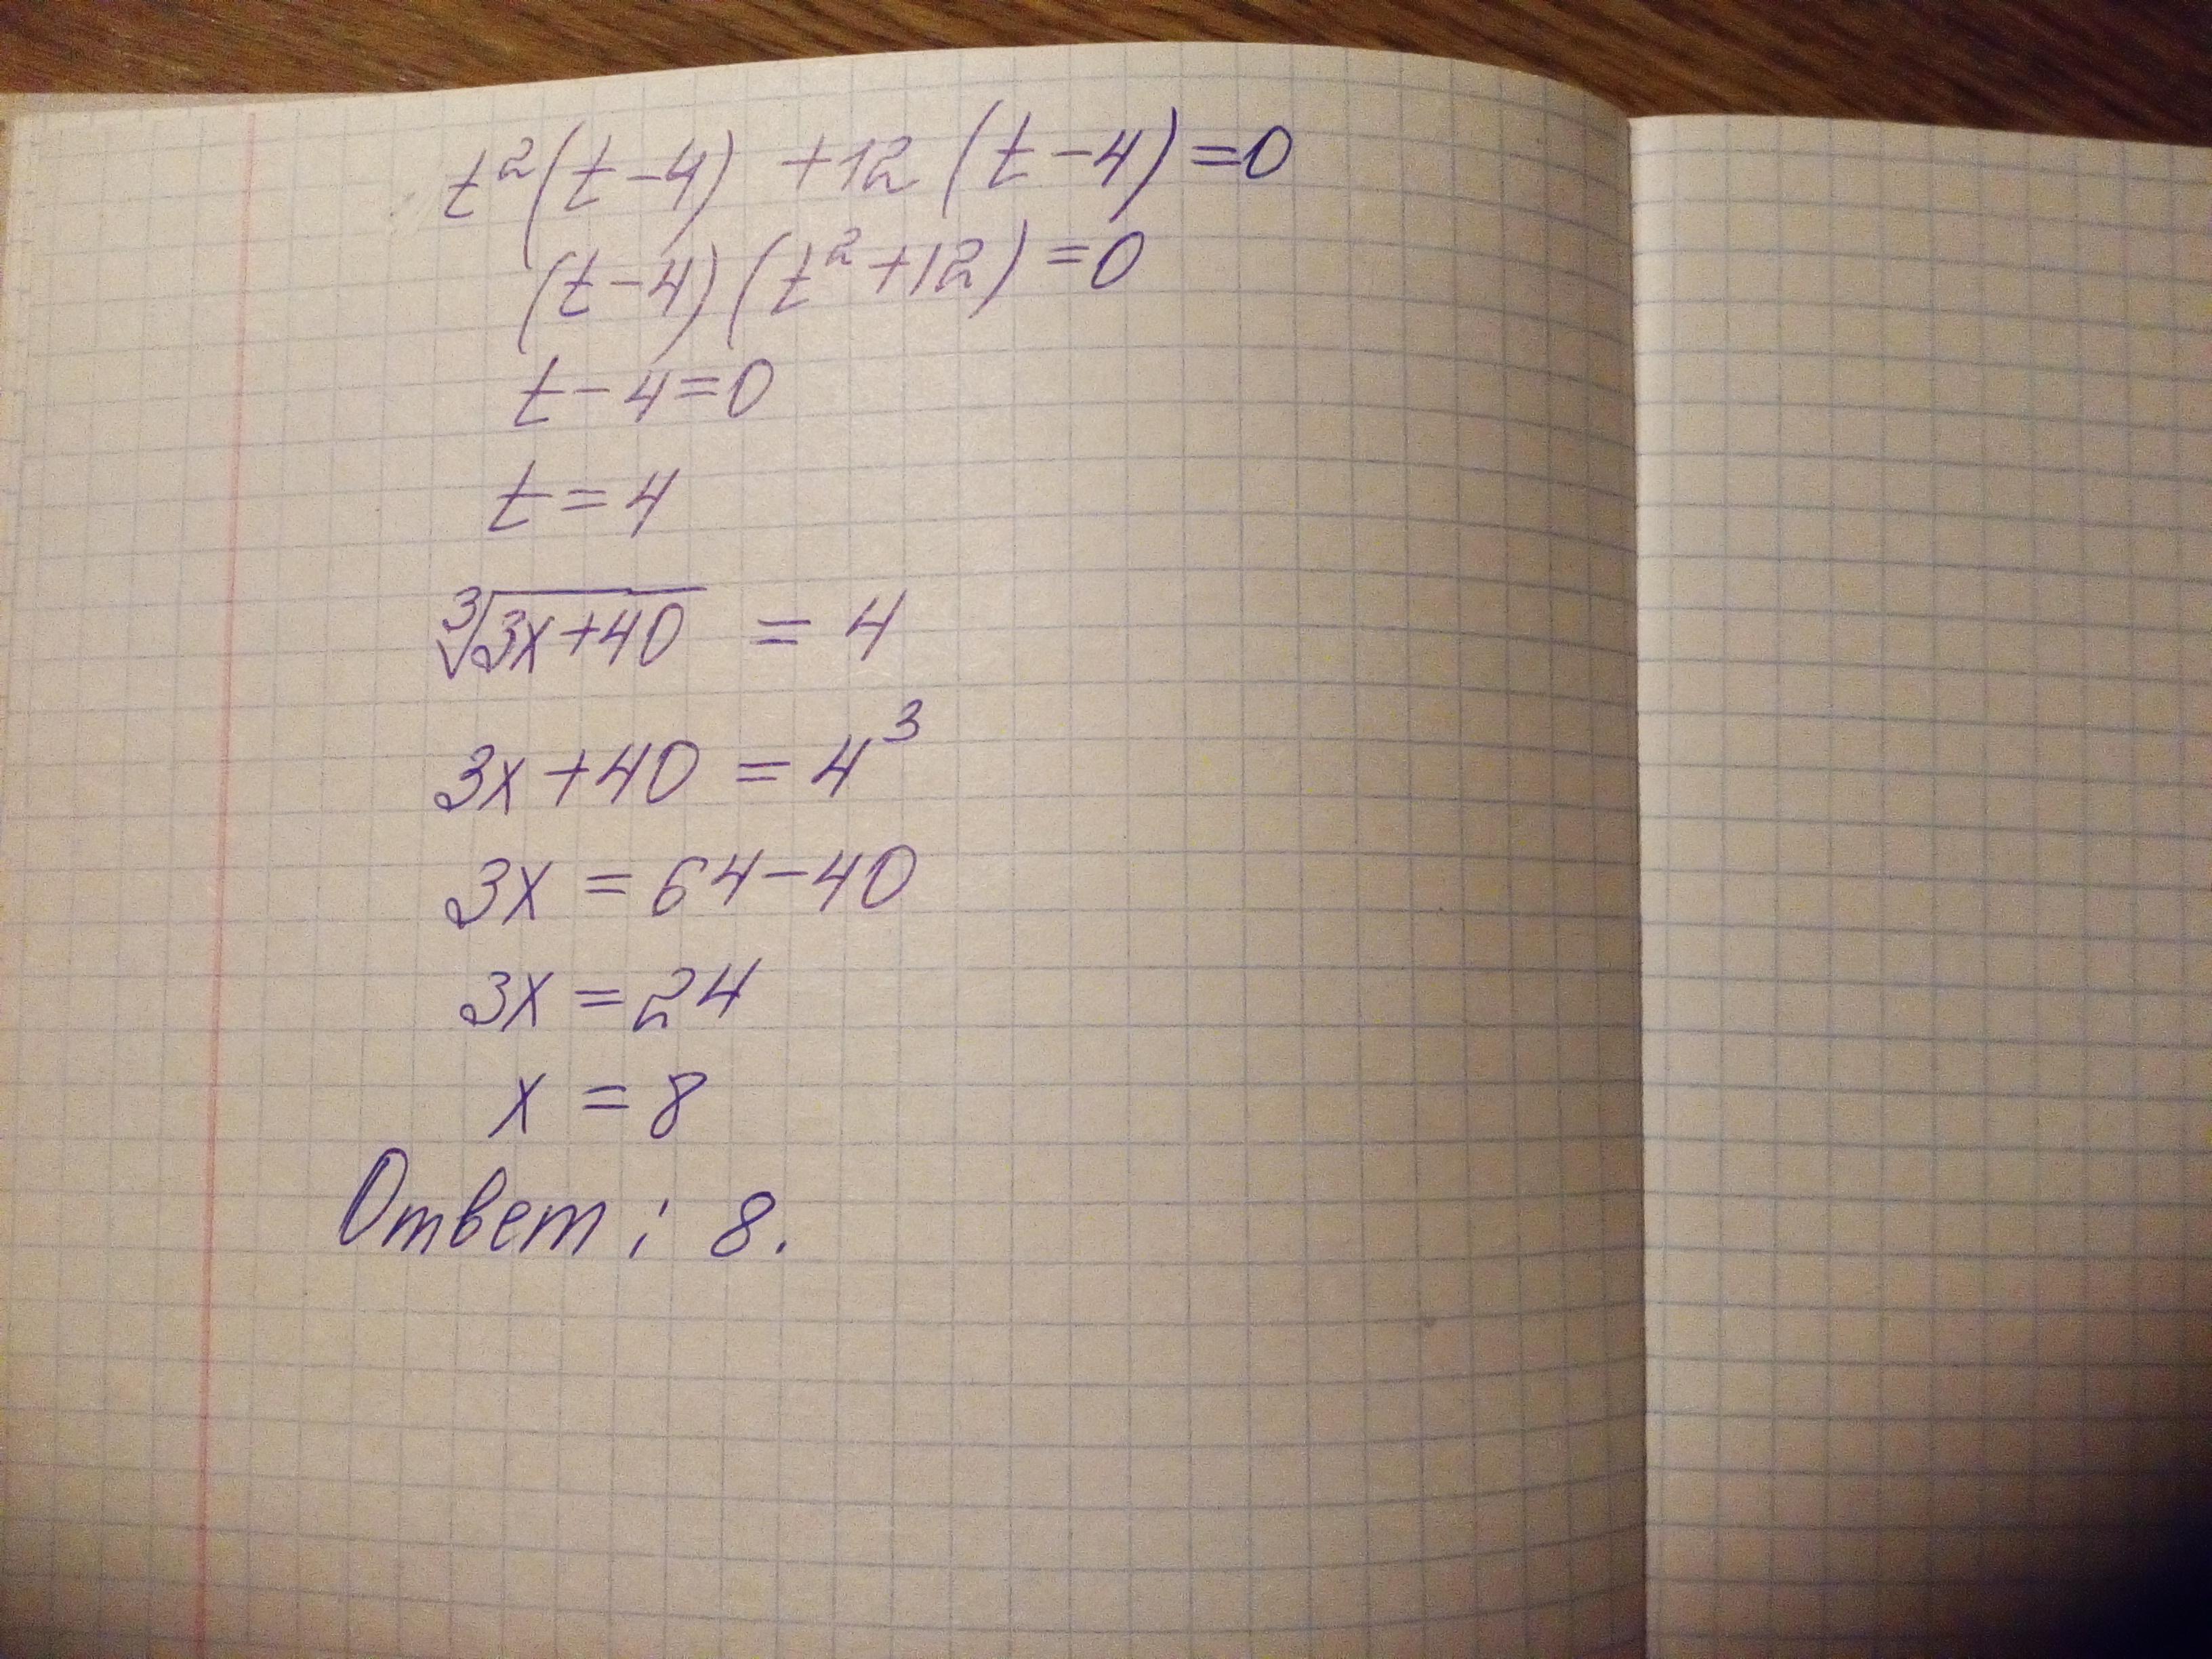 t²(t-4) +12(t-4)=0
(t-4)(t²+12)=0
t-4=0
t=4
∛(3x+40) = 4
3x+40 = 4³
3x = 64-40
3x = 24
x = 8
Ответ: 8.